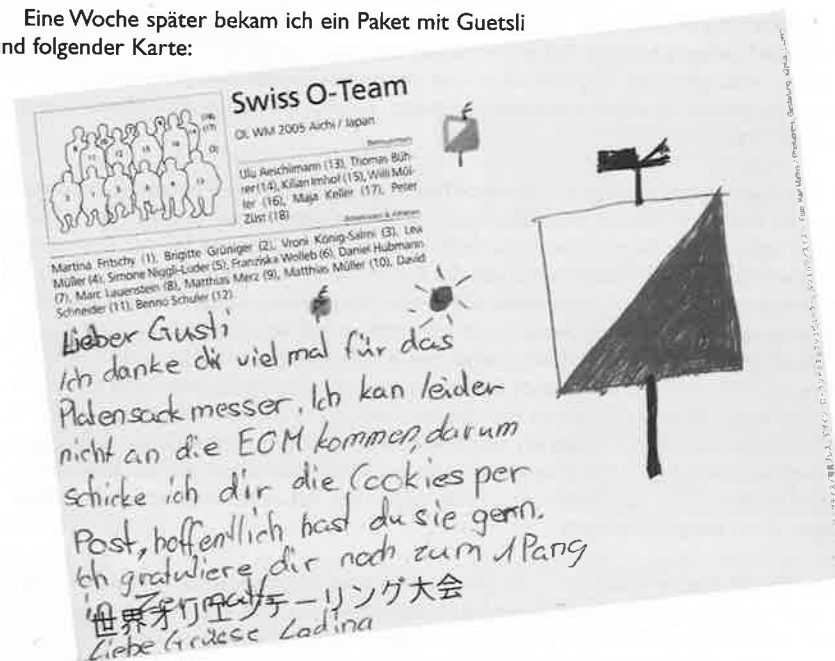 Eine Woche später bekam ich ein Paket mit Guetsli
nd folgender Karte:
Swiss O-Team
OL WM 2005 Aichi / Japan
Betreuerteam
Ulu Aeschlimann (13), Thomas Büh-
rer (14), Kilian Imhof (15), Willi Mül-
ler (16), Maja Keller (17), Peter
Züst (18)
Martina Fritschy (1), Brigitte Grüniger (2), Vroni König-Salmi (3), Lea
Müller (4), Simone Niggli-Luder (5), Franziska Wolleb (6), Daniel Hubmann
(7), Marc Lauenstein (8), Matthias Merz (9), Matthias Müller (10), David
Schneider (11), Benno Schuler (12)
Lieber Gusti
Ich danke dir viel mal für das
Platensackmesser. Ich kan leider
nicht an die EOM kommen, darum
schicke ich dir die Cookies per
Post, hoffentlich hast du sie gern.
Ich gratuliere dir noch zum 1 Rang
in Zermatt
世界オリエンテーリング大会
Liebe Grüsse Ladina